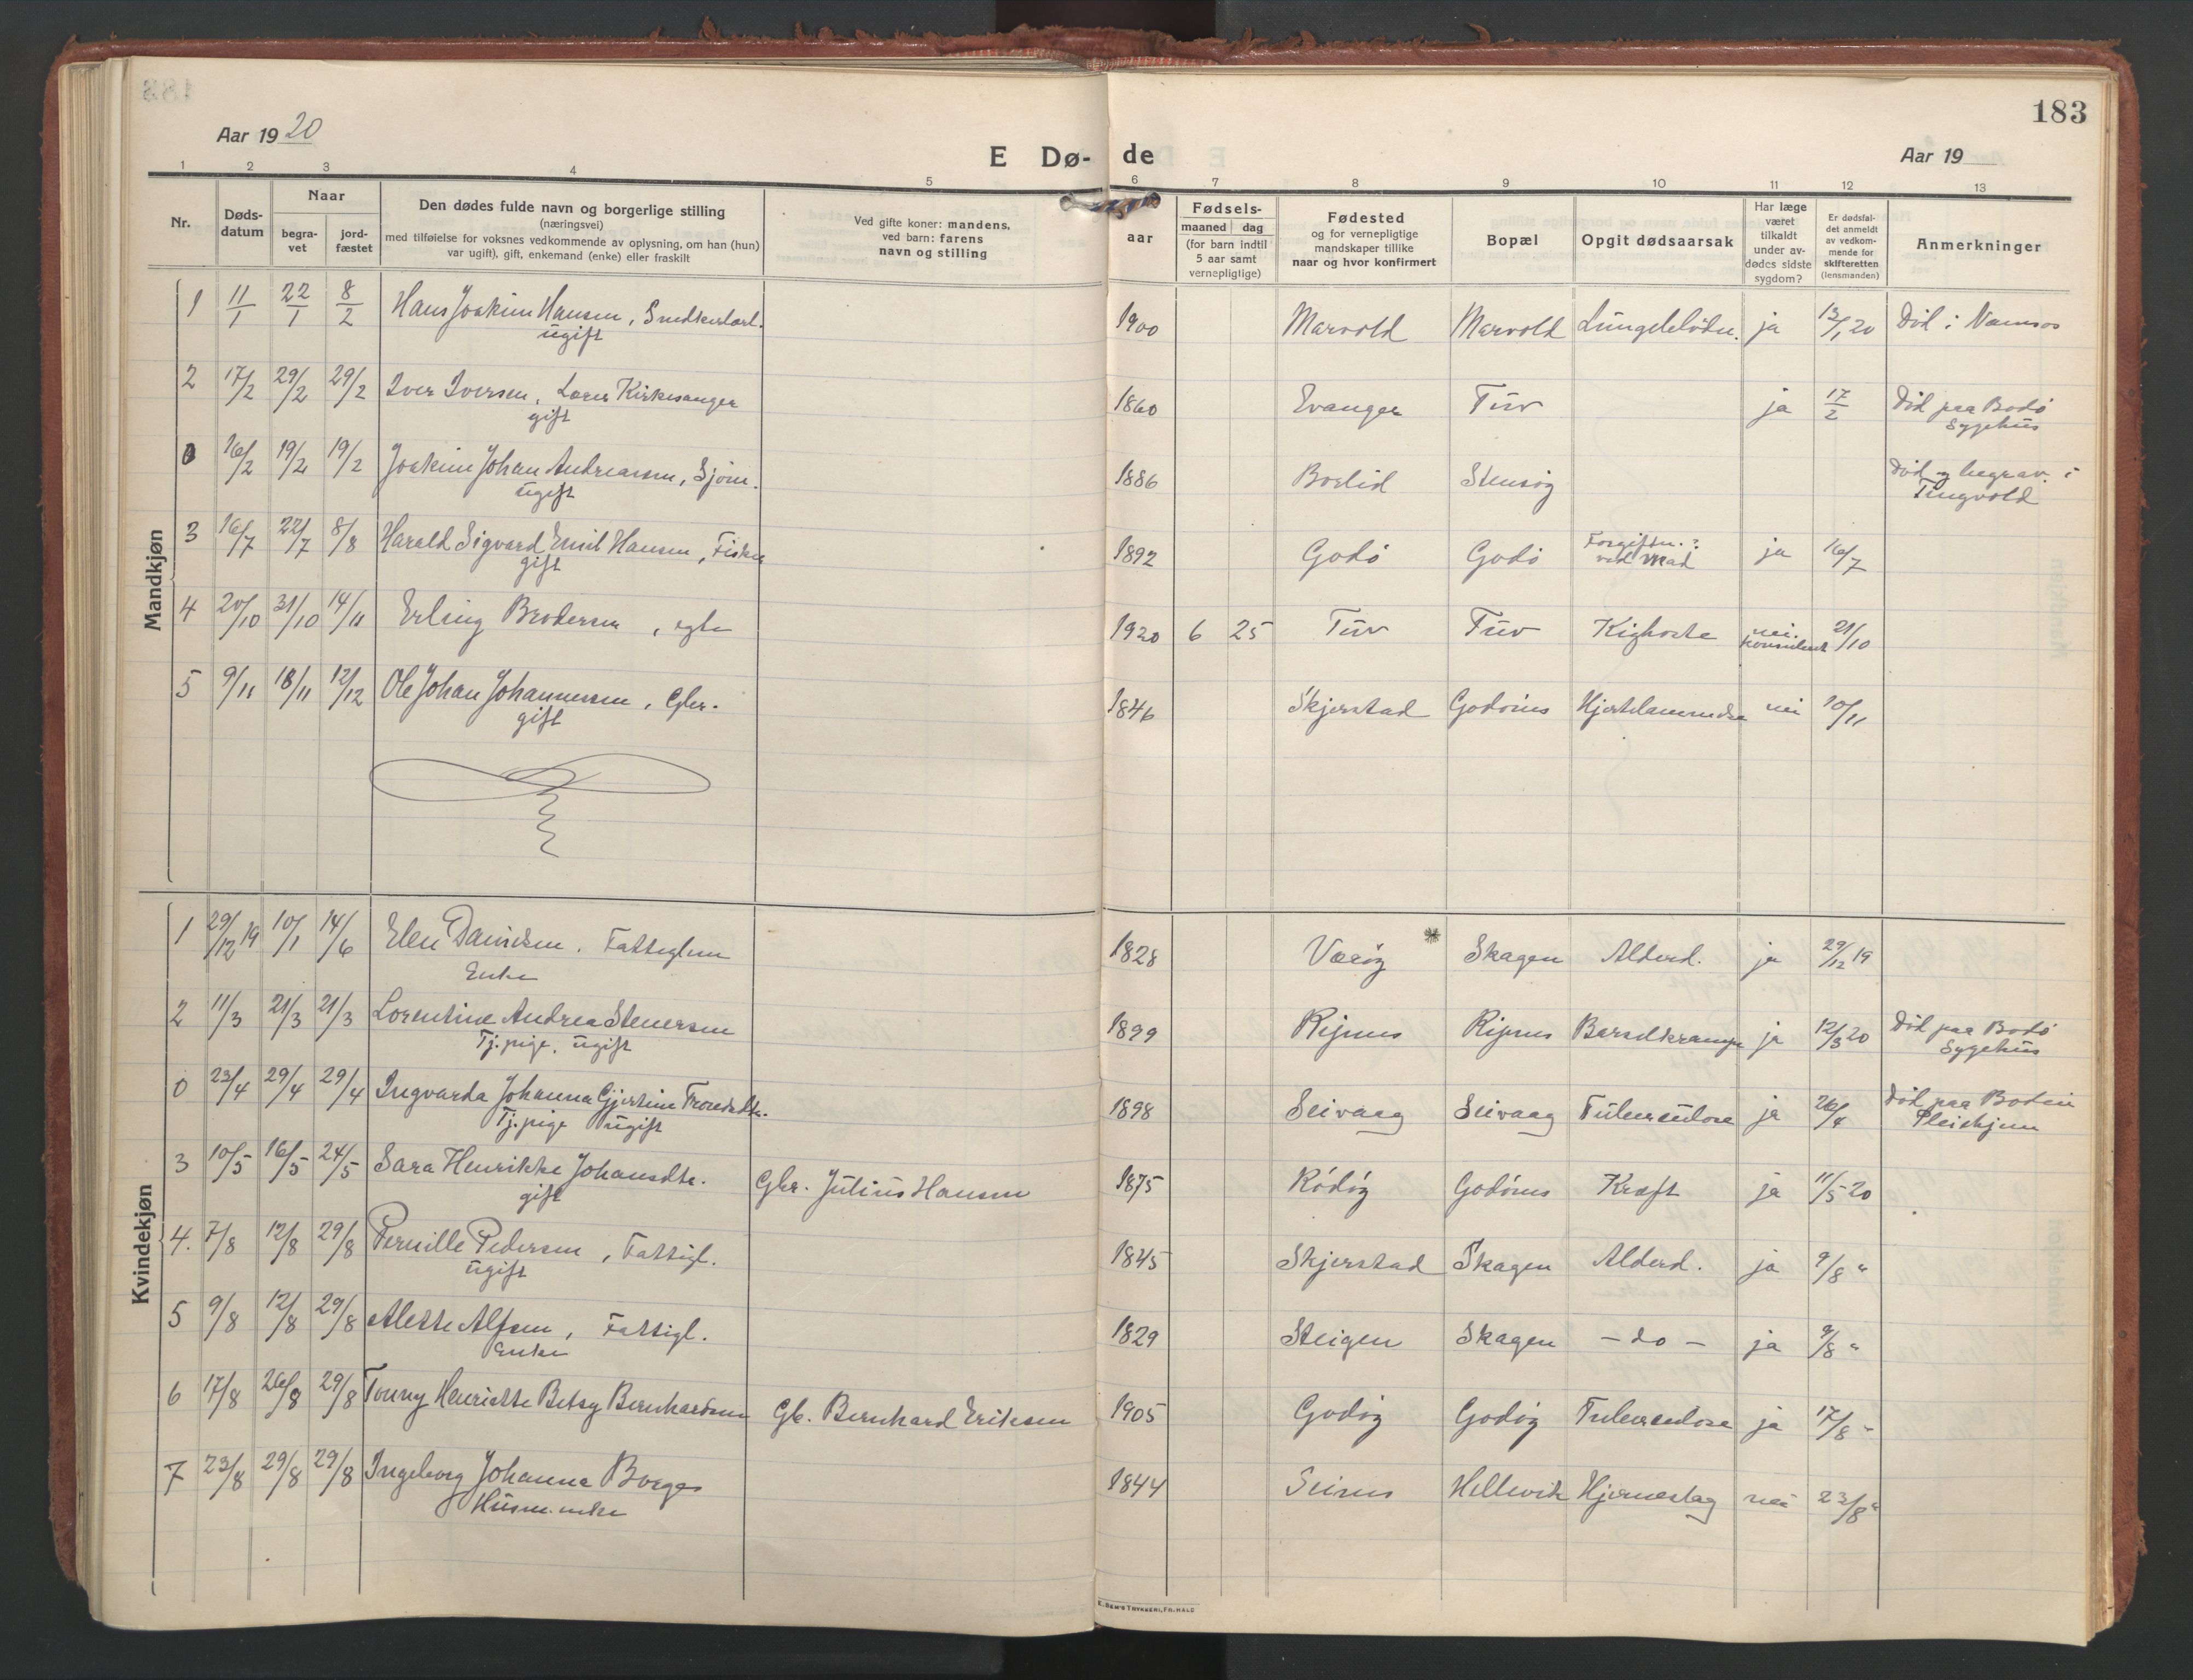 183
Aar 1920
E Dø- de
Aar 19
1 2 3 4 5 6 7 8 9 10 11 12 13
Nr.
Døds-
datum
Naar
begra-
vet
jord-
fæstet
Den dødes fulde navn og borgerlige stilling
(næringsvei)
med tilføielse for voksnes vedkommende av oplysning, om han (hun)
var ugift), gift, enkemand (enke) eller fraskilt
Ved gifte koner: mandens,
ved barn: farens
navn og stilling
Fødsels-
aar
maaned dag
(for barn indtil
5 aar samt
vernepligtige)
Fødested
og for vernepligtige
mandskaper tillike
naar og hvor konfirmert
Bopæl
Opgit dødsaarsak
Har læge
været
tilkaldt
under av-
dødes sidste
sygdom?
Er dødsfal-
det anmeldt
av vedkom-
mende for
skifteretten
(lensmanden)
Anmerkninger
Mandkjøn
1 11/1 22/1 8/2 Hans Joakim Hansen, Snedkerlærl. 1900 Marvold Marvold ja 13/1 20 Död i Namsos
ugift
2 17/2 29/2 29/2 Iver Iversen, Lærer Kirkesanger 1860 Evanger Tuv ja 17/2 Död paa Bodö
gift Sygehus
0 16/2 19/2 19/2 Joakim Johan Andreassen, Sjöm. 1886 Boelid Stensög Död og begrav. i
ugift Tingvold
3 16/7 22/7 8/8 Harald Sigvard Emil Hansen, Fisker 1892 Godö Godö Forgiftn.? ja 16/7
gift ved Mad
4 20/10 31/10 14/11 Erling Brodersen, egte 1920 6 25 Tuv Tuv Kighoste nei. 21/10
konsulent
5 9/11 18/11 12/12 Ole Johan Johannessen, Gbr. 1846 Skjerstad Godönes Hjertelammelse nei 10/11
gift
Kvindekjøn
1 29/12 19 10/1 14/6 Elen Davidsen. Fattiglem 1828 Væröy Skagen Alderd. ja 29/12 19
Enke
2 11/3 21/3 21/3 Lorentine Andrea Steversen 1899 Ripnes Ripnes Barselkrampe ja 12/3 20 Död paa Bodö
Tj.pige, ugift Sygehus
0 23/4 29/4 29/4 Ingvarda Johanna Gjertine 1898 Seivaag Seivaag Tuberculose ja 26/4 Död paa Bodin
Tj.pige ugift Pleiehjem
3 10/5 16/5 24/5 Sara Henrikke Johansdtr. Gbr. Julius Hansen 1875 Rödöy Godönes Kræft ja 11/5 20
gift
4. 7/8 12/8 29/8 Pernille Pedersen, Fattigl. 1845 Skjerstad Skagen Alderd. ja 9/8 "
ugift
5 9/8 12/8 29/8 Alette Alfsen, Fattigl. 1829 Steigen Skagen - do - ja 9/8 "
Enke
6 17/8 26/8 29/8 Tonny Henriette Betsy Bernhardsen Gb. Bernhard Eriksen 1905 Godöy Godöy Tuberculose ja 17/8 "
7 23/8 29/8 29/8 Ingeborg Johanna Borges 1844 Seines Hellevik Hjerneslag nei 23/8 "
Husm.enke
E. SEM'S TRYKKERI, FR.HALD